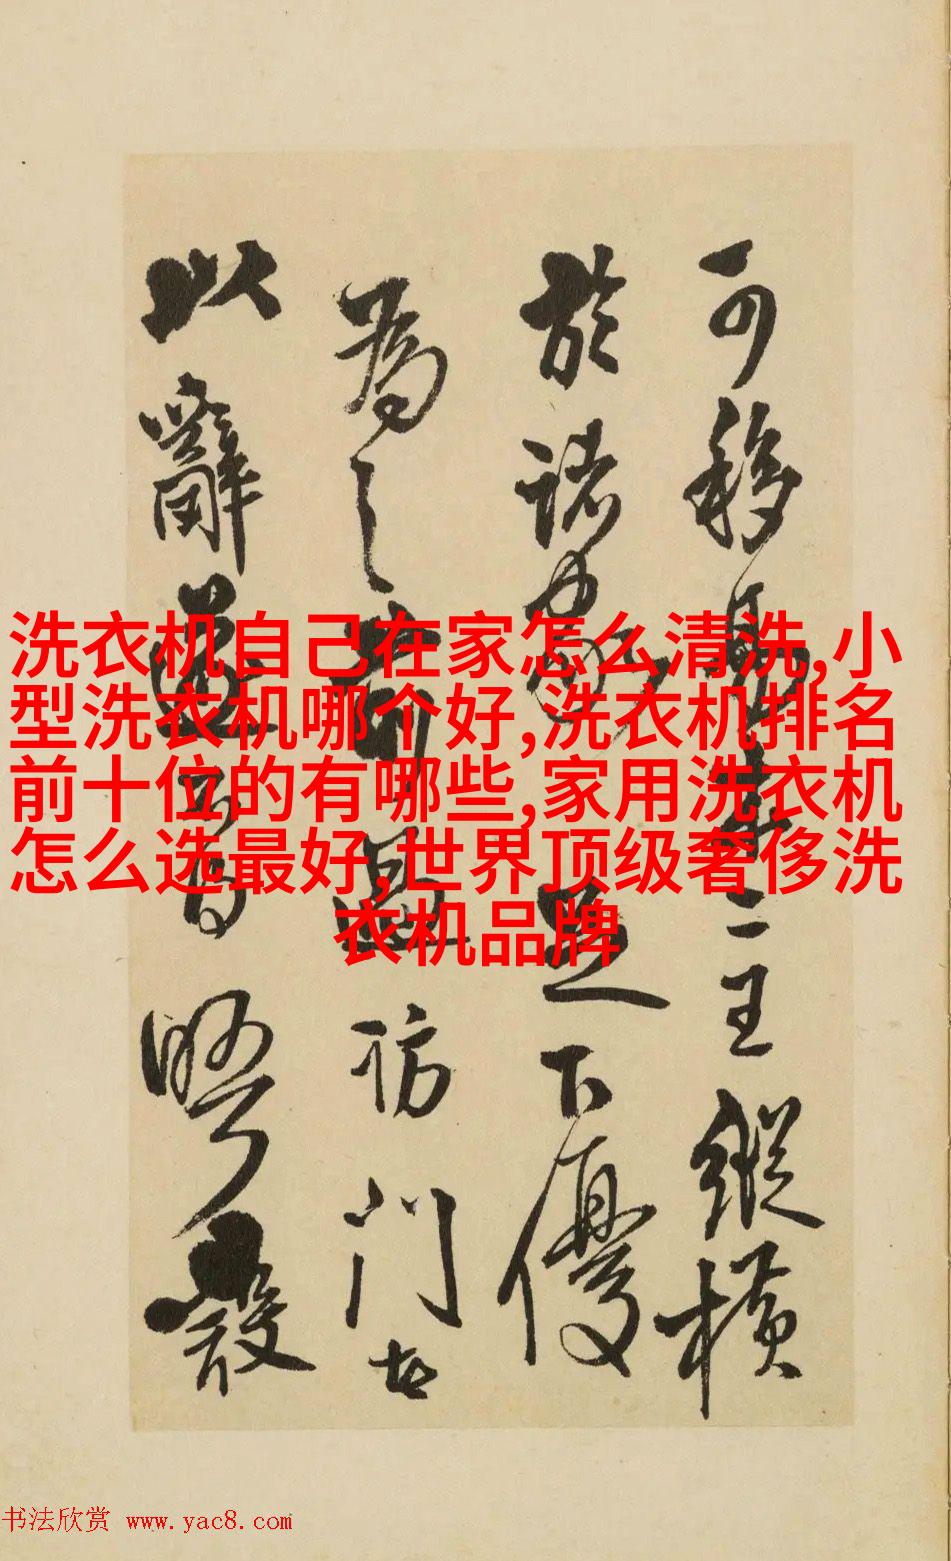 可移易耳二王縱橫
於諸家足下優
為之前過訪門士
以辭
洗衣机自己在家怎么清洗,小
型洗衣机哪个好,洗衣机排名
前十位的有哪些,家用洗衣机
怎么选最好,世界顶级奢侈洗
衣机品牌
书法欣赏 www.yac8.com